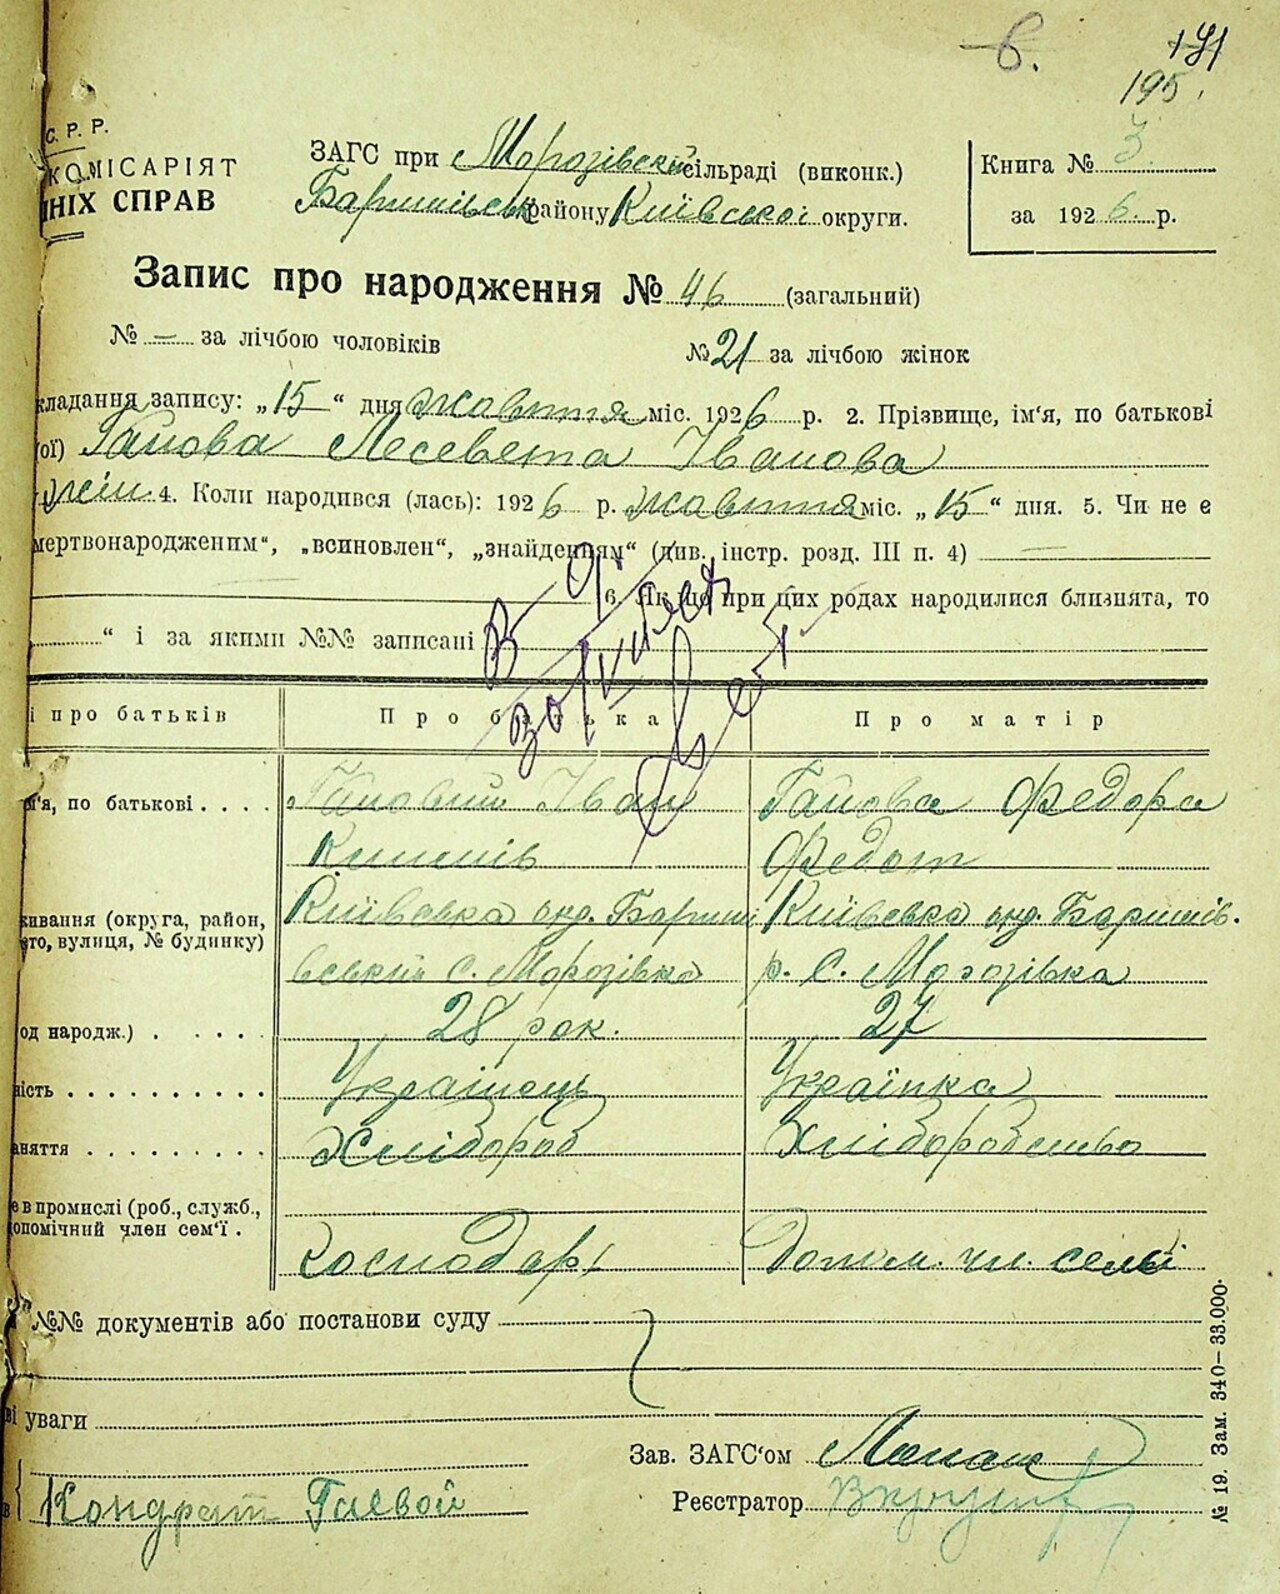 6.
171
195.
С. Р. Р.
КОМІСАРІЯТ
НІХ СПРАВ
ЗАГС при Морозівській сільраді (виконк.)
Баришівськ району Київської округи.
Книга № 3
за 1926 р.
Запис про народження № 46 (загальний)
№ — за лічбою чоловіків
№ 21 за лічбою жінок
кладання запису: „15“ дня жовтня міс. 1926 р. 2. Прізвище, ім'я, по батькові
(ої) Гайова Лесевета Іванова
жін. 4. Коли народився (лась): 1926 р. жовтня міс. „15“ дня. 5. Чи не є
мертвонародженим“, „всиновлен“, „знайденням“ (див. інстр. розд. III п. 4) —
6. Як що при цих родах народилися близнята, то
“ і за якими №№ записані
і про батьків
Про батька
Про матір
м'я, по батькові . . . .
Гайовий Іван
Гайова Федора
Федот
ивання (округа, район,
то, вулиця, № будинку)
Київська окр. Бариші
Київська окр. Баришів.
вський с. Морозівка
р. С. Морозівка
од народж.) . . . . .
28 рок.
27
ність . . . . . . . . . .
Українець
Українка
аняття . . . . . . . . .
Хлібороб
Хліборобство
е в промислі (роб., служб.,
опомічний член сем'ї .
Господар
Допом. чл. семьї
№№ документів або постанови суду
ві уваги
Зав. ЗАГС'ом
Реєстратор
Кондрат Гаевой
№ 19. Зам. 340—33.000.